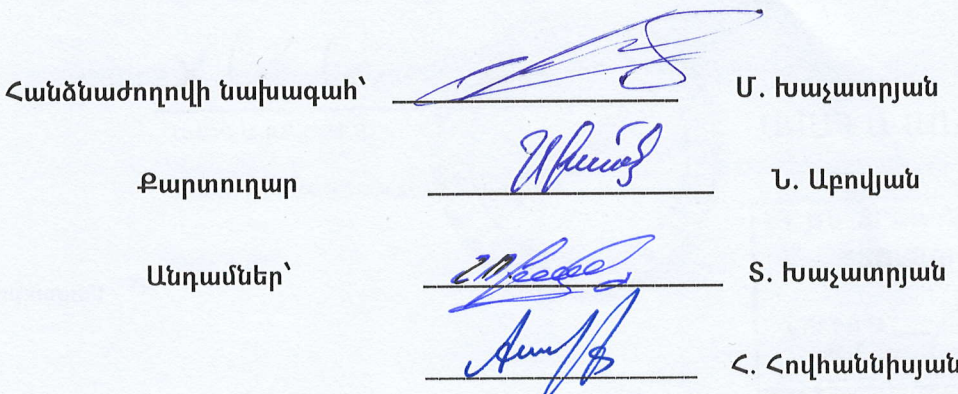 Հանձնաժողովի նախագահ՝ Մ. Խաչատրյան
Քարտուղար Ն. Աբովյան
Անդամներ՝ Տ. Խաչատրյան
Հ. Հովհաննիսյան